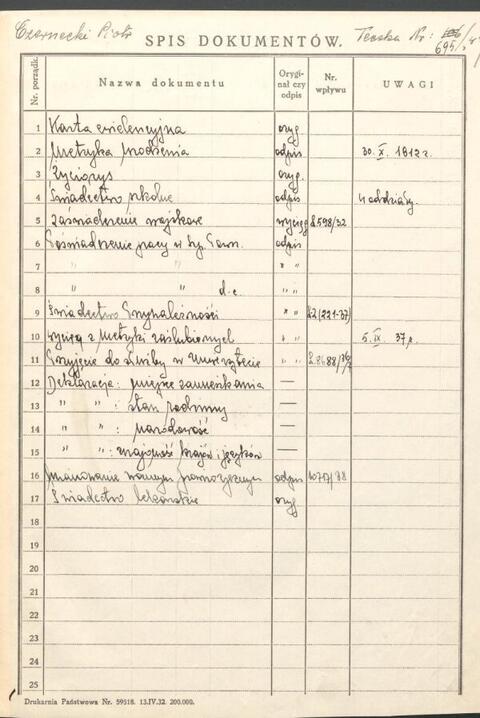 Czarnecki Piotr
Teczka Nr: 695/
SPIS DOKUMENTÓW.
Nr. porządk. Nazwa dokumentu Orygi-nał czy odpis Nr. wpływu UWAGI
1 Karta ewidencyjna oryg
2 Metryka urodzenia odpis 30. X. 1912 r.
3 Życiorys oryg.
4 Świadectwo szkolne odpis 4 oddziały.
5 Zaświadczenie wojskowe wyciąg 2598/32
6 Poświadczenie pracy w odpis
7 " " " "
8 " " d-c. " "
9 Świadectwo Przynależności " "
10 wyciąg z metryki zaślubionych " " 5. IX. 37 r.
11 Przyjęcie do służby w Uniwersytecie " "
12 Deklaracja: miejsce zamieszkania —
13 " " : stan rodzinny —
14 " " : narodowość —
15 " " : znajomość krajów i języków —
16 mianowanie woźnym odpis
17 Świadectwo lekarskie oryg
18
19
20
21
22
23
24
25
Drukarnia Państwowa Nr. 59518. 13.IV.32. 200.000.